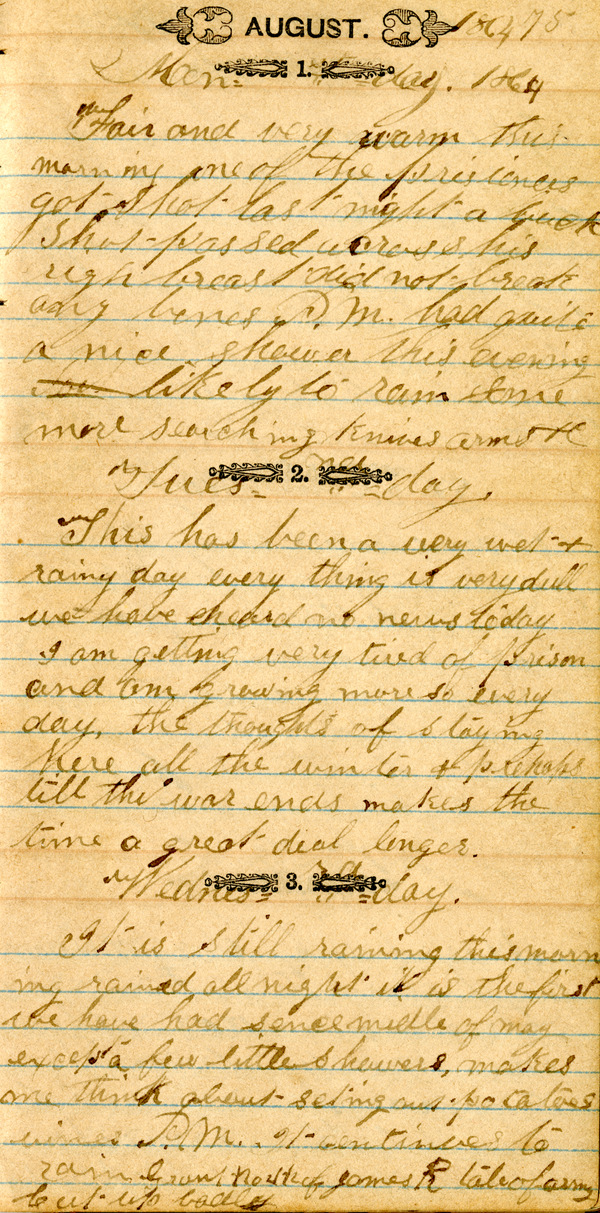 AUGUST. 18475
Mon= 1. day. 1864
Fair and very warm this
morning one of the prisioners
got shot last night a buck
Shot passed across his
righ breast did not break
any bones P.M. had quite
a nice shower this evening
likely to rain some
more searching knives arms &c
Tues= 2. nd =day.
This has been a very wet +
rainy day every thing is very dull
we have heard no news today
I am getting very tired of prison
and am growing more so every
day, the thoughts of staying
here all the winter & perhaps
till the war ends makes the
time a great deal longer.
Wednes= 3. rd =day.
It is still raining this morn
ing rained all night it is the first
we have had sence midle of may
except a few little showers, makes
me think about seting out potatoes
vines P.M. It continues to
rain Grant North of James R take of army
cut up badly